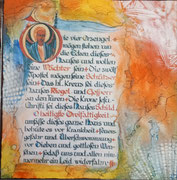 Die vier Erzengel
mögen stehen um
die Ecken dieses
Hauses und wollen
seine Wächter sein. Die zwölf
Apostel mögen seine Schützer
sein. Das hl. Kreuz sei dieses
Hauses Riegel und
an den Türen. Die Krone Jesu
Christi sei dieses Hauses Schild.
O heiligste Dreifaltigkeit
umfaße dieses ganze Haus und
behüte es vor Krankheit, Feuers-
gefahr und Überschwemmung,
vor Dieben und gottlosen Men-
schen, sodaß uns und allen nim-
mermehr ein Leid widerfahre